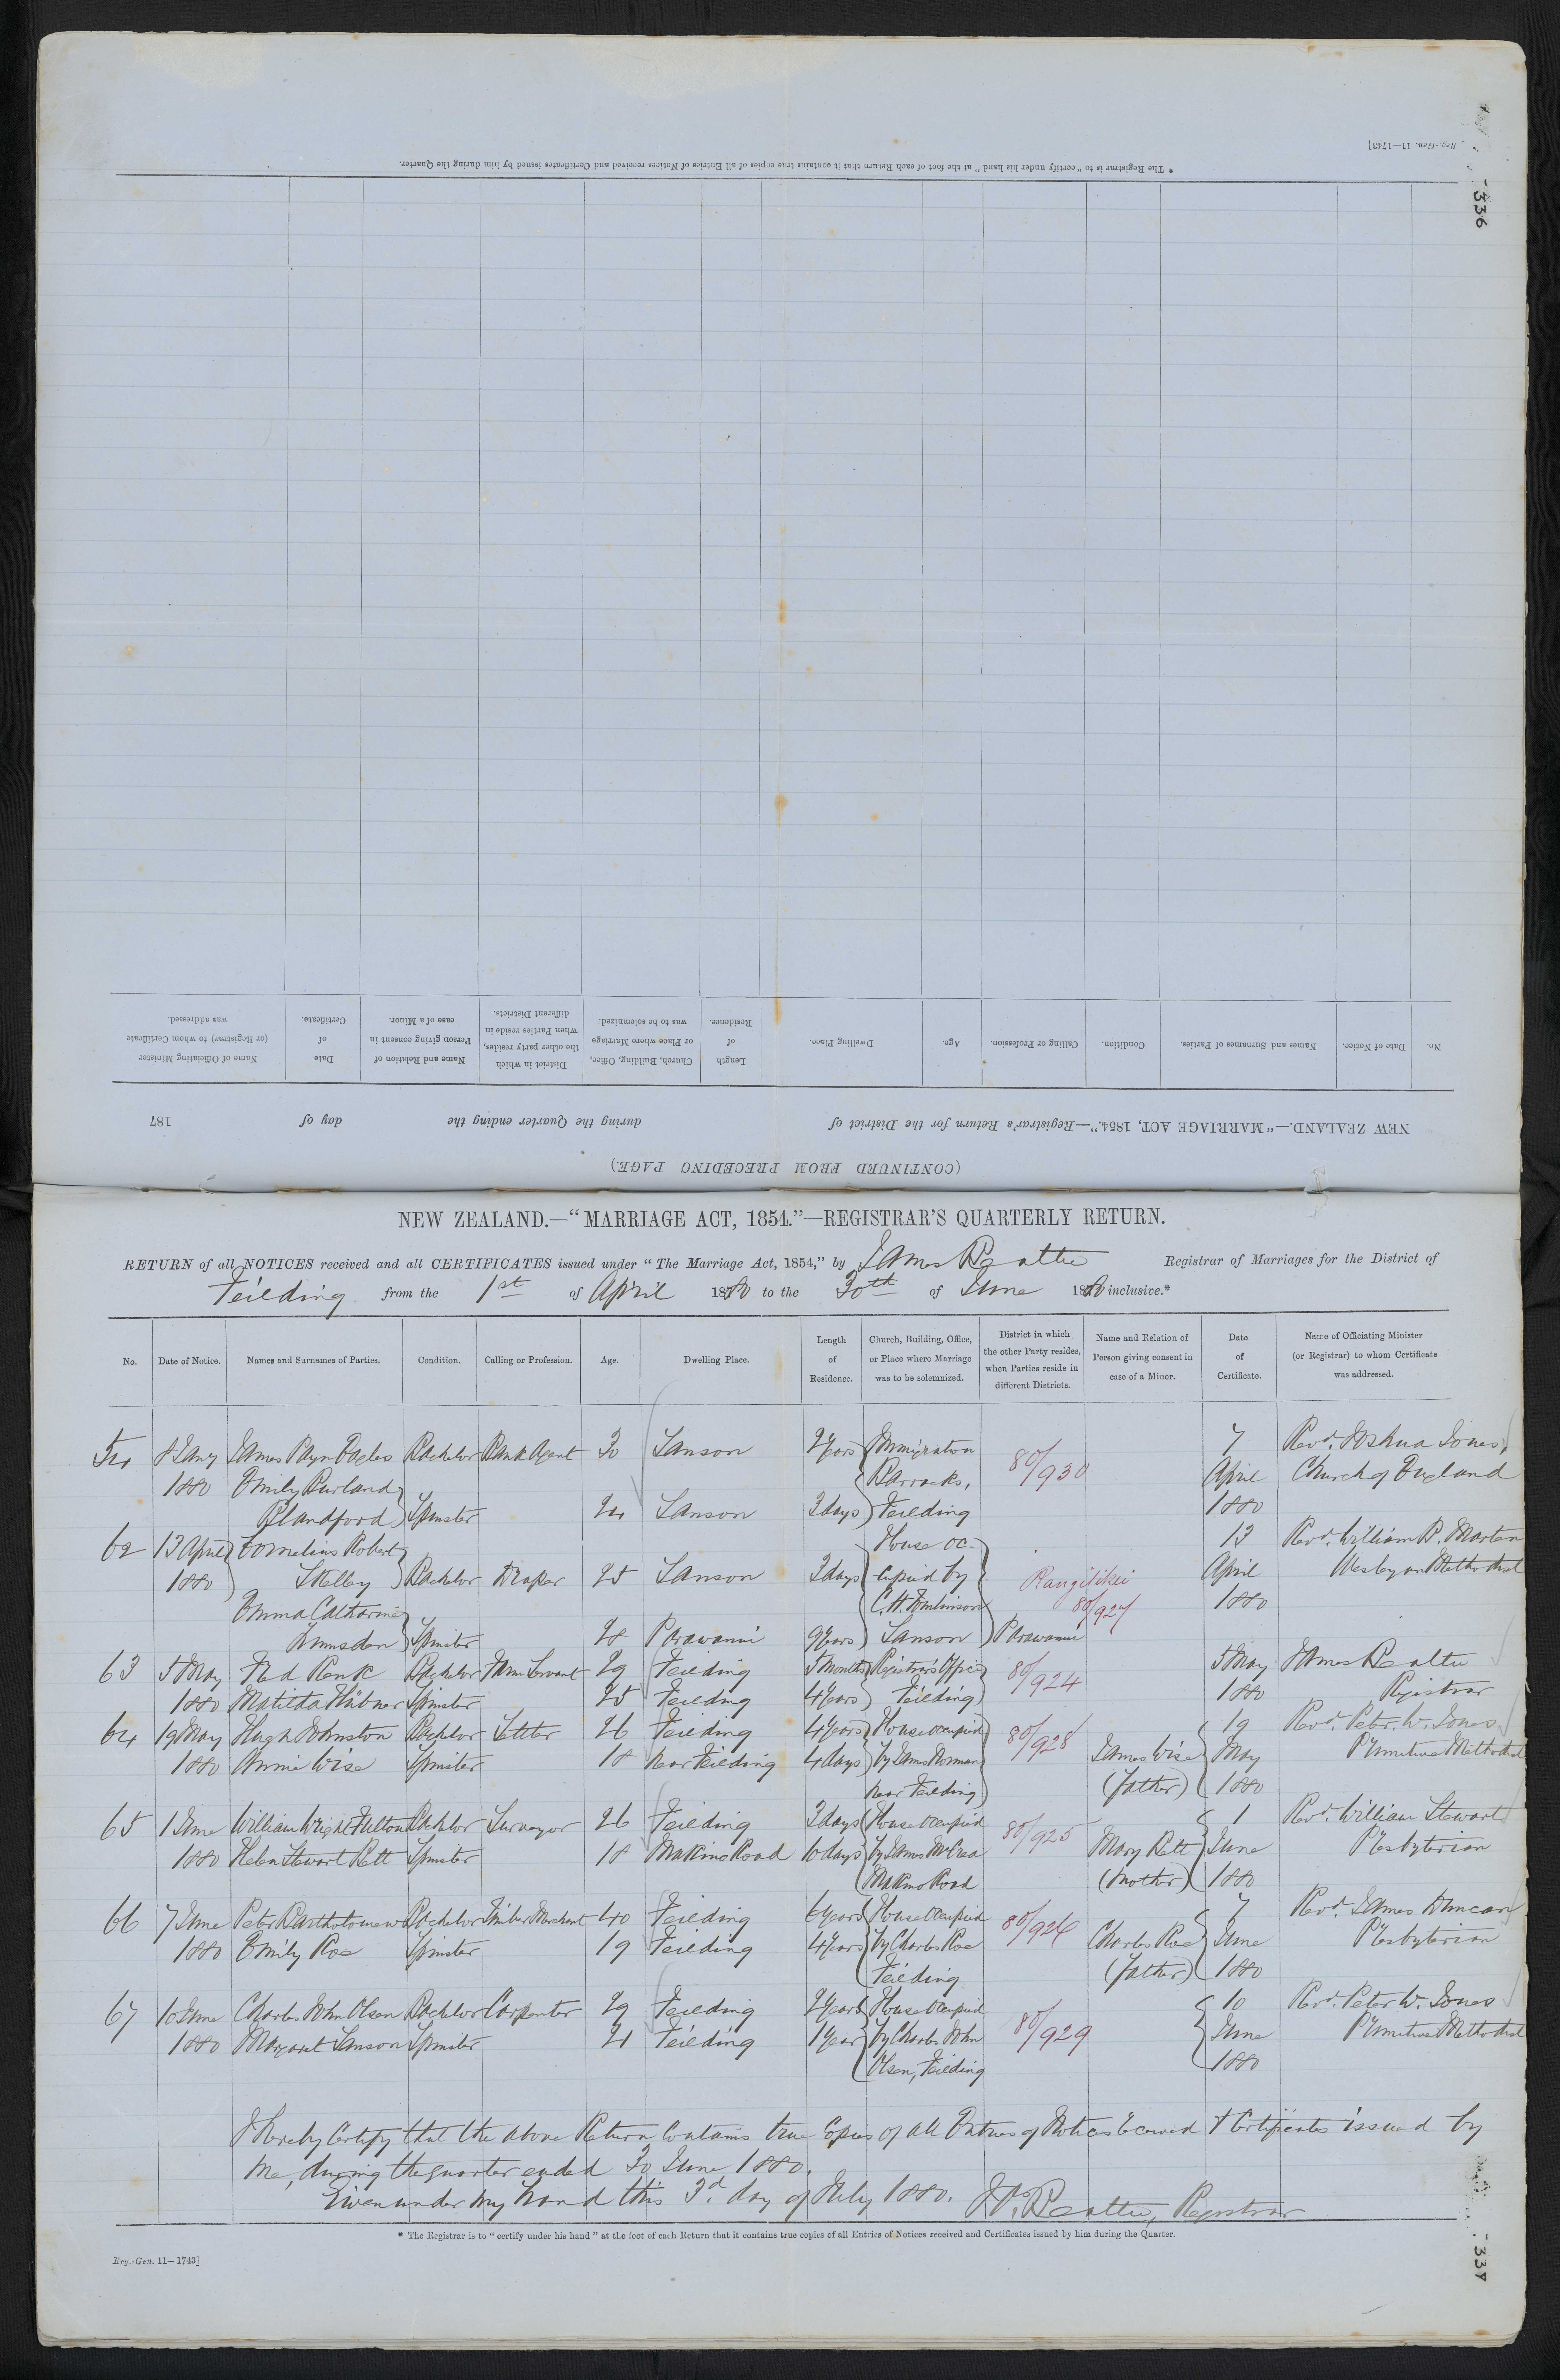 336
Reg.-Gen. 11—1743]
* The Registrar is to "certify under his hand" at the foot of each Return that it contains true copies of all Entries of Notices received and Certificates issued by him during the Quarter.
No. Date of Notice. Names and Surnames of Parties. Condition. Calling or Profession. Age. Dwelling Place. Length of Residence. Church, Building, Office, or Place where Marriage was to be solemnized. District in which the other party resides, when Parties reside in different Districts. Name and Relation of Person giving consent in case of a Minor. Date of Certificate. Name of Officiating Minister (or Registrar) to whom Certificate was addressed.
NEW ZEALAND.—"MARRIAGE ACT, 1854."—Registrar's Return for the District of during the Quarter ending the day of 187
(CONTINUED FROM PRECEDING PAGE.)
NEW ZEALAND.—"MARRIAGE ACT, 1854."—REGISTRAR'S QUARTERLY RETURN.
RETURN of all NOTICES received and all CERTIFICATES issued under "The Marriage Act, 1854," by James Beattie Registrar of Marriages for the District of
Feilding from the 1st of April 1880 to the 30th of June 1880 inclusive.*
No. Date of Notice. Names and Surnames of Parties. Condition. Calling or Profession. Age. Dwelling Place. Length of Residence. Church, Building, Office, or Place where Marriage was to be solemnized. District in which the other Party resides, when Parties reside in different Districts. Name and Relation of Person giving consent in case of a Minor. Date of Certificate. Name of Officiating Minister (or Registrar) to whom Certificate was addressed.
54 8 Jany James Payn Eagles Bachelor Bank Agent 30 Sanson 2 Years Immigration 80/930 7 Revd. Joshua Jones,
1880 Emily Burland Barracks, April Church of England
Blandford Spinster 24 Sanson 3 days Feilding 1880
62 13 April Cornelius Robert House oc- 13 Revd. William B. Marten
1880 Skelley Bachelor Draper 25 Sanson 3 days cupied by Rangitikei April Wesleyan Methodist
Emma Catharine C. H. Tomlinson 80/927 1880
Lumsden Spinster 28 Parawanui 9 Years Sanson Parawanui
63 5 May Ned Penk Bachelor Farm Servant 29 Feilding 5 Months Registrar's Office 80/924 5 May James Beattie
1880 Matilda Hübner Spinster 25 Feilding 4 Years Feilding 1880 Registrar
64 19 May Hugh Johnston Bachelor Settler 26 Feilding 4 Years House occupied 80/928 19 Revd. Peter W. Jones
1880 Annie Wise Spinster 18 Near Feilding 4 days by James Norman James Wise May Primitive Methodist
Near Feilding (Father) 1880
65 1 June William Wright Fulton Bachelor Surveyor 26 Feilding 3 days House occupied 80/925 1 Revd. William Stewart
1880 Helen Stewart Bett Spinster 18 Makino Road 10 days by James McCrea Mary Bett June Presbyterian
Makino Road (Mother) 1880
66 7 June Peter Bartholomew Bachelor Timber Merchant 40 Feilding 6 Years House occupied 80/926 7 Revd. James Duncan
1880 Emily Roe Spinster 19 Feilding 4 Years by Charles Roe Charles Roe June Presbyterian
Feilding (Father) 1880
67 10 June Charles John Olsen Bachelor Carpenter 29 Feilding 2 Years House occupied 80/929 10 Revd. Peter W. Jones
1880 Margaret Sanson Spinster 21 Feilding 1 Year by Charles John June Primitive Methodist
Olsen, Feilding 1880
I hereby Certify that the above Return Contains true Copies of all Entries of Notices received & Certificates issued by
me, during the quarter ended 30 June 1880.
Given under my hand this 3d. day of July 1880. Js. Beattie, Registrar
* The Registrar is to "certify under his hand" at the foot of each Return that it contains true copies of all Entries of Notices received and Certificates issued by him during the Quarter.
Reg.-Gen. 11—1743]
337